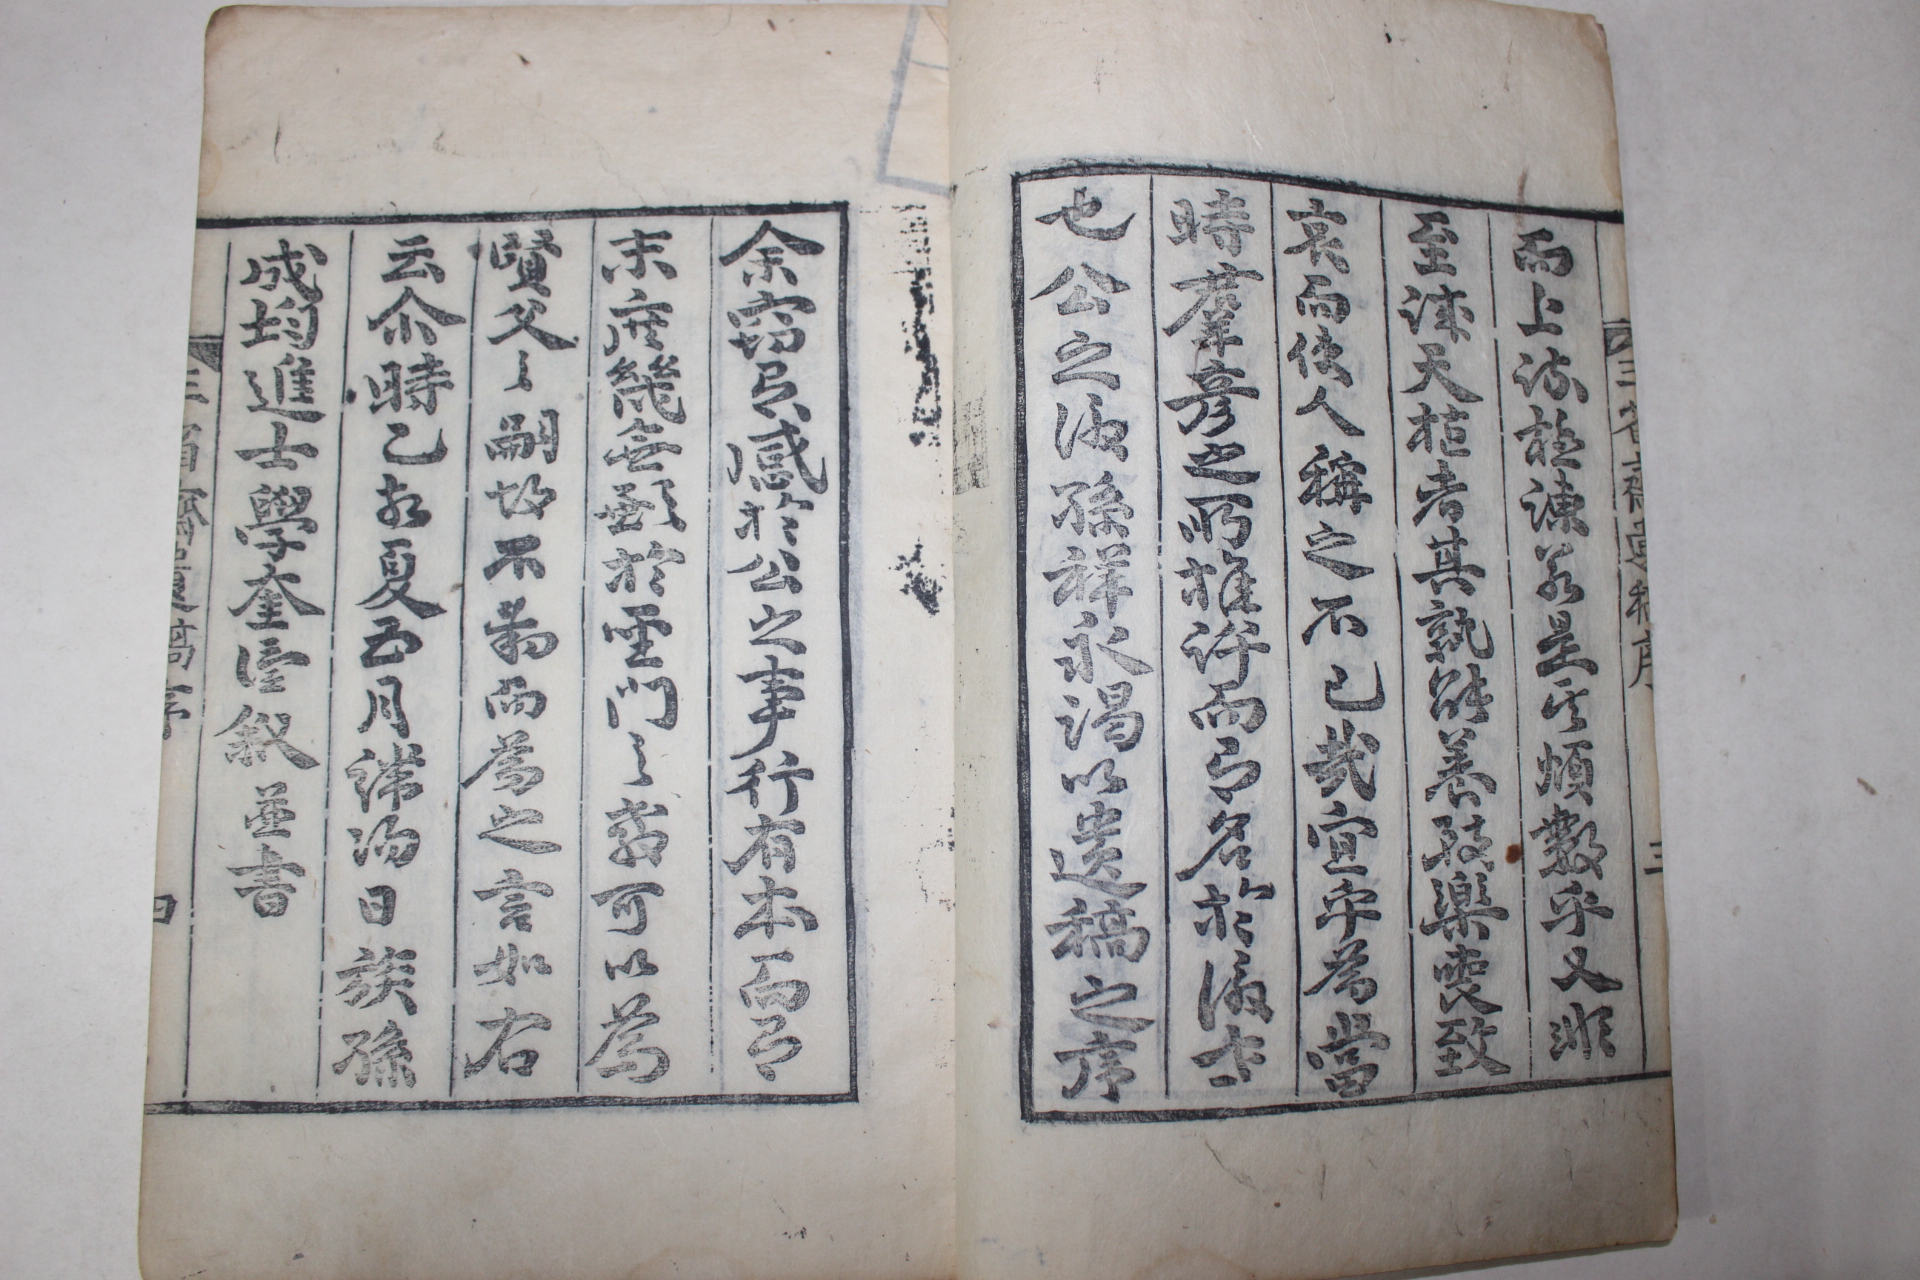 三省齋遺稿序 三
而上疏極諫若是其煩數乎又非
至誠天植者其孰能養致樂喪致
哀而使人稱之不已哉宜乎爲當
時羣彦之所推許而有名於後世
也公之後孫祥永謁以遺稿之序
余竊有感於公之事行有本而有
末庶幾無愧於聖門之可以爲
賢父之嗣故不而爲之言如右
云尒時乙夘夏五月端陽日族孫
成均進士學奎謹叙並書
三省齋遺稿序 四